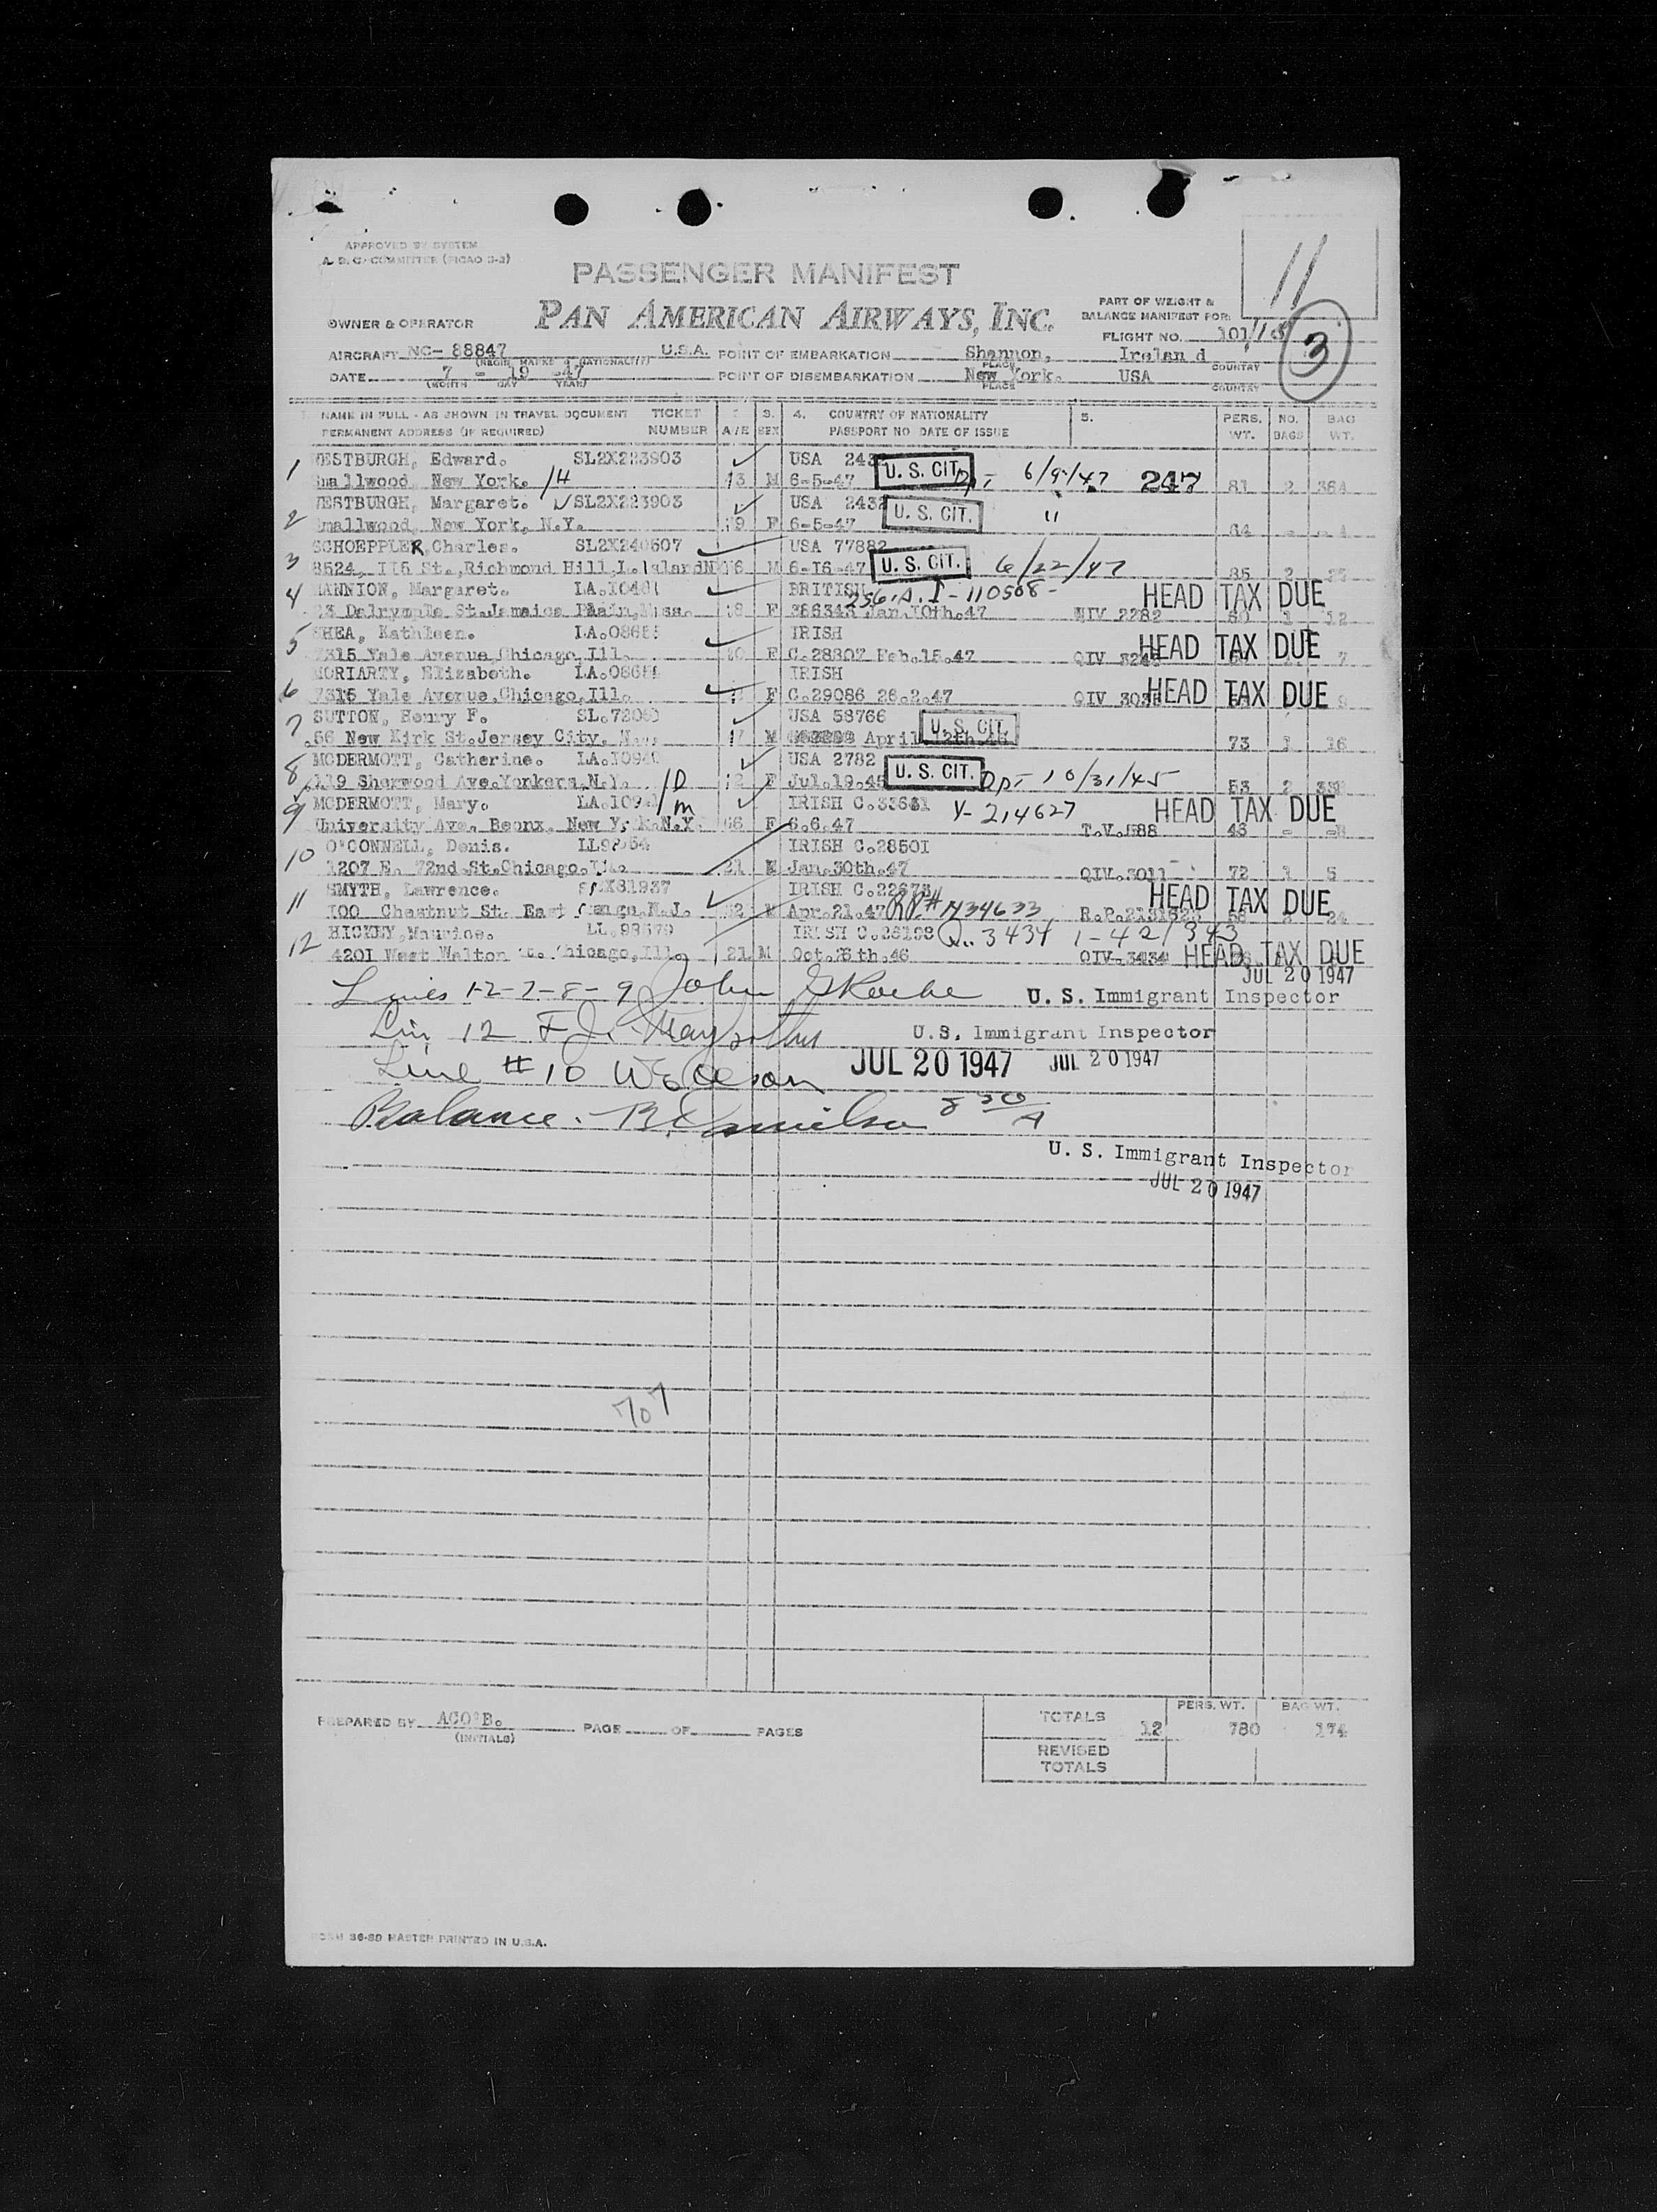 APPROVED BY SYSTEM
A. D. C. COMMITTEE (PICAO 3-3)
11
PASSENGER MANIFEST
PAN AMERICAN AIRWAYS, INC.
OWNER & OPERATOR
PART OF WEIGHT &
BALANCE MANIFEST FOR:
FLIGHT NO. 101/
3
AIRCRAFT NC- 88847 U.S.A. POINT OF EMBARKATION Shannon, Ireland
(REGIS. MARKS & NATIONALITY) PLACE COUNTRY
DATE 7 - 19 -47 POINT OF DISEMBARKATION New York. USA
(MONTH DAY YEAR) PLACE COUNTRY
NAME IN FULL - AS SHOWN IN TRAVEL DOCUMENT TICKET 3. 4. COUNTRY OF NATIONALITY 5. PERS. NO. BAG
PERMANENT ADDRESS (IF REQUIRED) NUMBER AGE SEX PASSPORT NO DATE OF ISSUE WT. BAGS WT.
1 WESTBURGH, Edward. SL2X223903 USA 243
Smallwood, New York. /H 43 M 6-5-47 U. S. CIT. 6/9/47 247 81 2
2 WESTBURGH, Margaret. SL2X223903 USA 2432
Smallwood, New York, N.Y. 39 F 6-5-47 U. S. CIT. " 64 -
3 SCHOEPPLER, Charles. SL2X240607 USA 77882
8524, 115 St., Richmond Hill, L. M 6-16-47 U. S. CIT. 6/22/47 85 2
4 MANNION, Margaret. LA.1048 BRITISH 256.A. I-110508- HEAD TAX DUE
Dalrymple St. Jamaica Plain, Mass. F 386343 Jan.10th.47 NIV 2282 50 1 12
5 SHEA, Kathleen. LA.0865 IRISH HEAD TAX DUE
7315 Yale Avenue, Chicago, Ill. F C.28307 Feb.15.47 QIV 7
6 MORIARTY, Elizabeth. LA.0865 IRISH
7315 Yale Avenue, Chicago, Ill. F C.29086 26.2.47 QIV 3035 HEAD TAX DUE 9
7 SUTTON, Henry F. SL.7206 USA 58766 U. S. CIT.
56 New Kirk St. Jersey City, M April 12th 73 1 16
8 MCDERMOTT, Catherine. LA.1094 USA 2782
119 Sherwood Ave. Yonkers, N.Y. /D F Jul.19.45 U. S. CIT. 10/31/45 53 2
9 MCDERMOTT, Mary. LA.109 /m IRISH C.33661 V- 214627 HEAD TAX DUE
University Ave. Bronx, New York.N.Y. 66 F 6.6.47 T.V.588 43 -
10 O'CONNELL, Denis. LL98 IRISH C.28501
1207 E. 72nd St. Chicago, 21 M Jan.30th.47 QIV.3011 72 1 5
11 SMYTH, Lawrence. X81937 IRISH C.22673 HEAD TAX DUE
100 Chestnut St. East Orange, N.J. M Apr.21.47 RP# 1434633 R.P. 24
12 HICKEY, Maurice. LL.98579 IRISH C.26198 Q. 3434 1-421343
4201 West Walton Chicago, Ill. 21 M Oct. th.46 QIV-3434 HEAD TAX DUE
JUL 20 1947
Lines 1-2-7-8-9 John U. S. Immigrant Inspector
Line 12 F.J. U. S. Immigrant Inspector
Line #10 JUL 20 1947 JUL 20 1947
Balance. 8 30/A
U. S. Immigrant Inspector
JUL 20 1947
707
PREPARED BY ACO'B. PAGE OF PAGES
(INITIALS)
PERS. WT. BAG WT.
TOTALS 12 780 174
REVISED
TOTALS
FORM 36-80 MASTER PRINTED IN U.S.A.